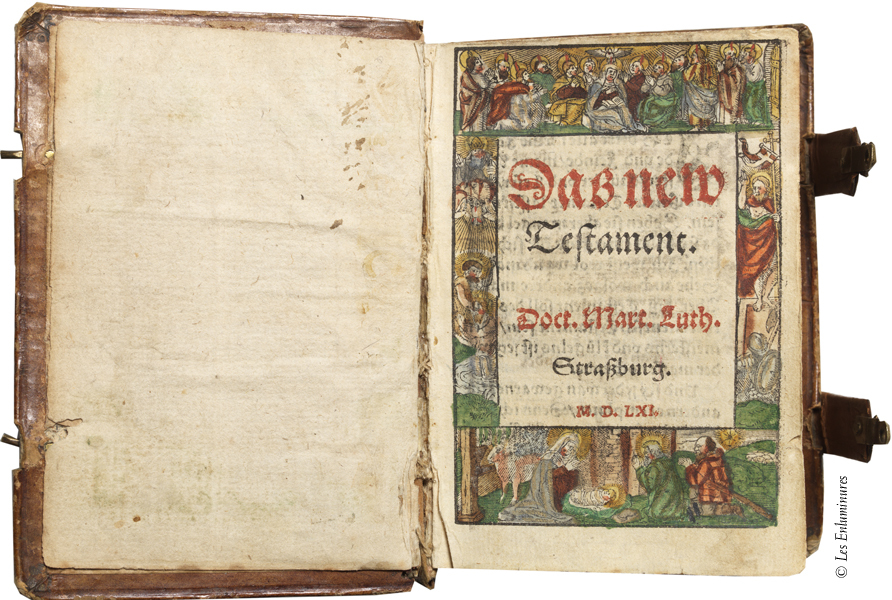 Das new
Testament.
Doct. Mart. Luth.
Straßburg.
M. D. LXI.
© Les Enluminures